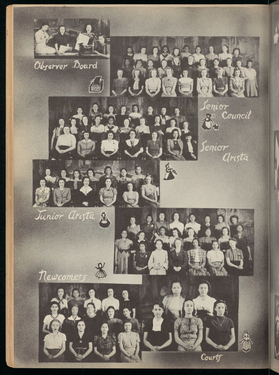 Observer Board
Senior
Council
Senior
Arista
Junior Arista
Newcomers
Courts